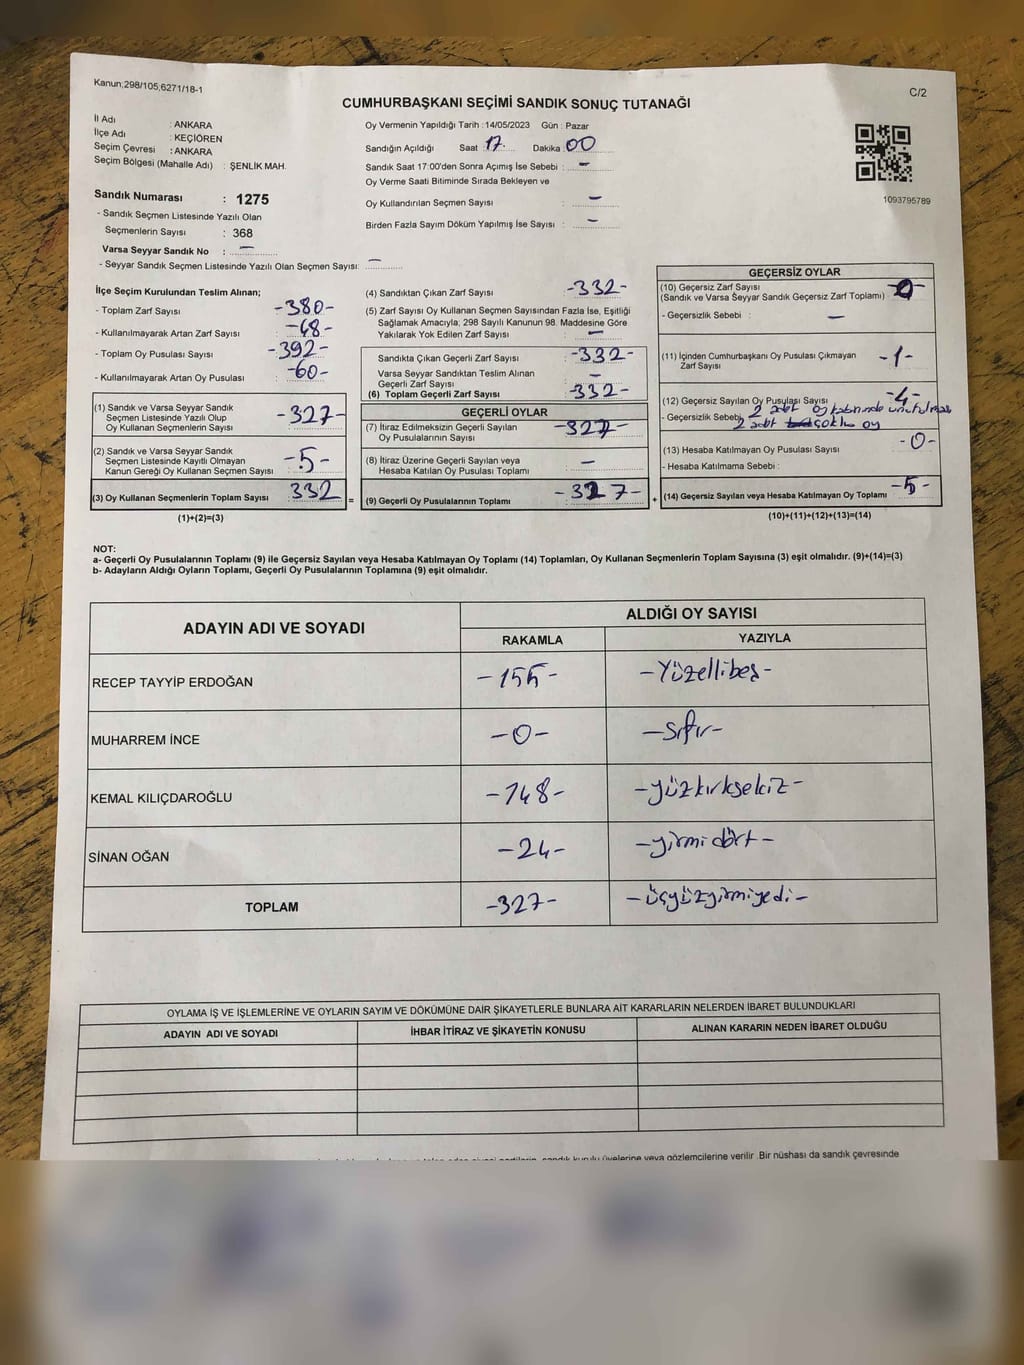 Kanun;298/105,6271/18-1
C/2
CUMHURBAŞKANI SEÇİMİ SANDIK SONUÇ TUTANAĞI
İl Adı : ANKARA
İlçe Adı : KEÇİÖREN
Seçim Çevresi : ANKARA
Seçim Bölgesi (Mahalle Adı) : ŞENLİK MAH.
Oy Vermenin Yapıldığı Tarih :14/05/2023 Gün : Pazar
Sandığın Açıldığı Saat :17 Dakika :00
Sandık Saat 17:00'den Sonra Açımış İse Sebebi : -
Oy Verme Saati Bitiminde Sırada Bekleyen ve
Oy Kullandırılan Seçmen Sayısı : -
Birden Fazla Sayım Döküm Yapılmış İse Sayısı : -
1093795789
Sandık Numarası : 1275
- Sandık Seçmen Listesinde Yazılı Olan
Seçmenlerin Sayısı : 368
Varsa Seyyar Sandık No : -
- Seyyar Sandık Seçmen Listesinde Yazılı Olan Seçmen Sayısı: -
İlçe Seçim Kurulundan Teslim Alınan;
- Toplam Zarf Sayısı : -380-
- Kullanılmayarak Artan Zarf Sayısı : -48-
- Toplam Oy Pusulası Sayısı : -392-
- Kullanılmayarak Artan Oy Pusulası : -60-
(1) Sandık ve Varsa Seyyar Sandık
Seçmen Listesinde Yazılı Olup
Oy Kullanan Seçmenlerin Sayısı : -327-
(2) Sandık ve Varsa Seyyar Sandık
Seçmen Listesinde Kayıtlı Olmayan
Kanun Gereği Oy Kullanan Seçmen Sayısı : -5-
(3) Oy Kullanan Seçmenlerin Toplam Sayısı : 332
(1)+(2)=(3)
=
(4) Sandıktan Çıkan Zarf Sayısı : -332-
(5) Zarf Sayısı Oy Kullanan Seçmen Sayısından Fazla İse, Eşitliği
Sağlamak Amacıyla; 298 Sayılı Kanunun 98. Maddesine Göre
Yakılarak Yok Edilen Zarf Sayısı : -
Sandıkta Çıkan Geçerli Zarf Sayısı : -332-
Varsa Seyyar Sandıktan Teslim Alınan
Geçerli Zarf Sayısı : -
(6) Toplam Geçerli Zarf Sayısı : -332-
GEÇERLİ OYLAR
(7) İtiraz Edilmeksizin Geçerli Sayılan
Oy Pusulalarının Sayısı : -327-
(8) İtiraz Üzerine Geçerli Sayılan veya
Hesaba Katılan Oy Pusulası Toplamı : -
(9) Geçerli Oy Pusulalarının Toplamı : -327-
+
GEÇERSİZ OYLAR
(10) Geçersiz Zarf Sayısı : -0-
(Sandık ve Varsa Seyyar Sandık Geçersiz Zarf Toplamı)
- Geçersizlik Sebebi : -
(11) İçinden Cumhurbaşkanı Oy Pusulası Çıkmayan
Zarf Sayısı : -1-
(12) Geçersiz Sayılan Oy Pusulası Sayısı -4-
- Geçersizlik Sebebi 2 adet oy kabininde unutulması
2 adet çoklu oy
(13) Hesaba Katılmayan Oy Pusulası Sayısı : -0-
- Hesaba Katılmama Sebebi :
(14) Geçersiz Sayılan veya Hesaba Katılmayan Oy Toplamı : -5-
(10)+(11)+(12)+(13)=(14)
NOT:
a- Geçerli Oy Pusulalarının Toplamı (9) ile Geçersiz Sayılan veya Hesaba Katılmayan Oy Toplamı (14) Toplamları, Oy Kullanan Seçmenlerin Toplam Sayısına (3) eşit olmalıdır. (9)+(14)=(3)
b- Adayların Aldığı Oyların Toplamı, Geçerli Oy Pusulalarının Toplamına (9) eşit olmalıdır.
ADAYIN ADI VE SOYADI
ALDIĞI OY SAYISI
RAKAMLA YAZIYLA
RECEP TAYYİP ERDOĞAN -155- -Yüzellibeş-
MUHARREM İNCE -0- -Sıfır-
KEMAL KILIÇDAROĞLU -148- -yüzkırksekiz-
SİNAN OĞAN -24- -yirmidört-
TOPLAM -327- -üçyüzyirmiyedi-
OYLAMA İŞ VE İŞLEMLERİNE VE OYLARIN SAYIM VE DÖKÜMÜNE DAİR ŞİKAYETLERLE BUNLARA AİT KARARLARIN NELERDEN İBARET BULUNDUKLARI
ADAYIN ADI VE SOYADI İHBAR İTİRAZ VE ŞİKAYETİN KONUSU ALINAN KARARIN NEDEN İBARET OLDUĞU
sandık kurulu üyelerine veya gözlemcilerine verilir .Bir nüshası da sandık çevresinde